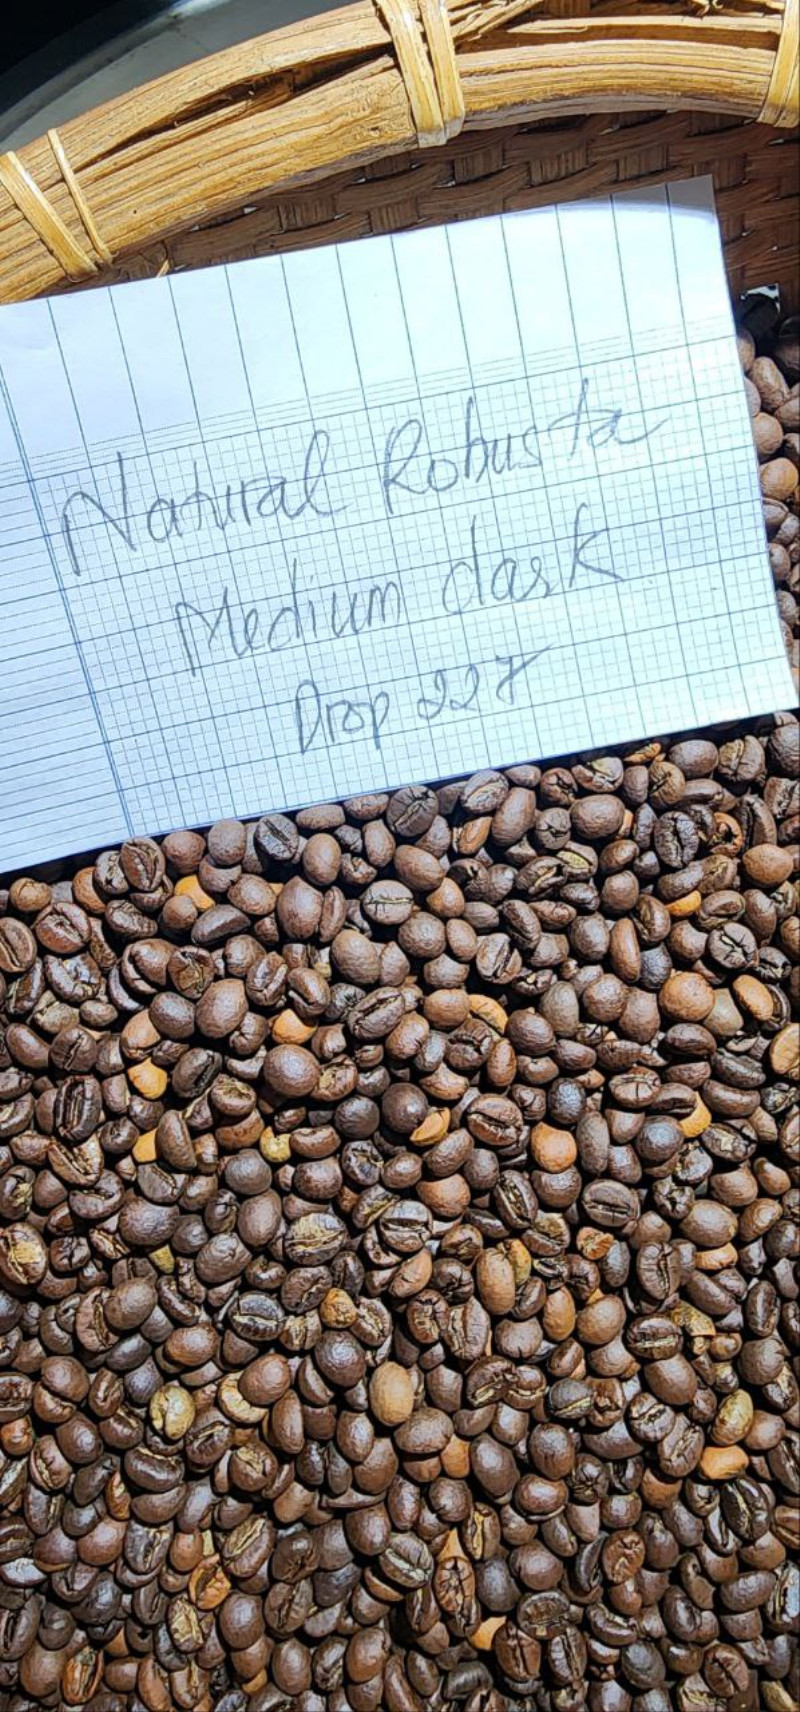 Natural Robusta
Medium dark
Drop 228